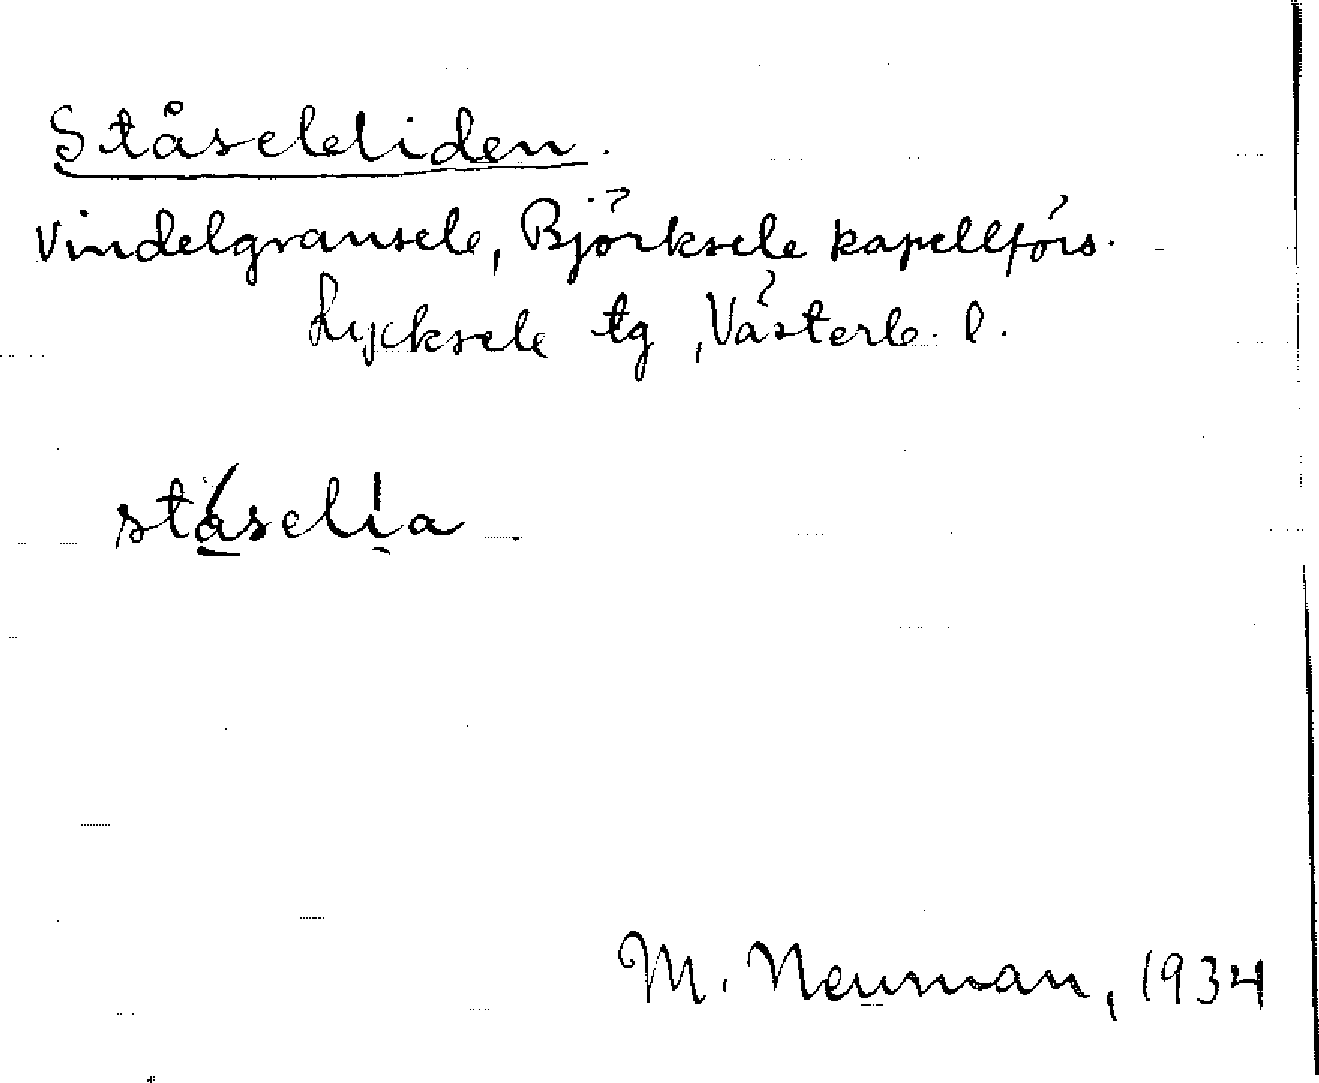 Ståseleliden.
Vindelgransele, Björksele kapellförs.
Lycksele tg, Västerb. l.
ståselia
M. Neuman, 1934